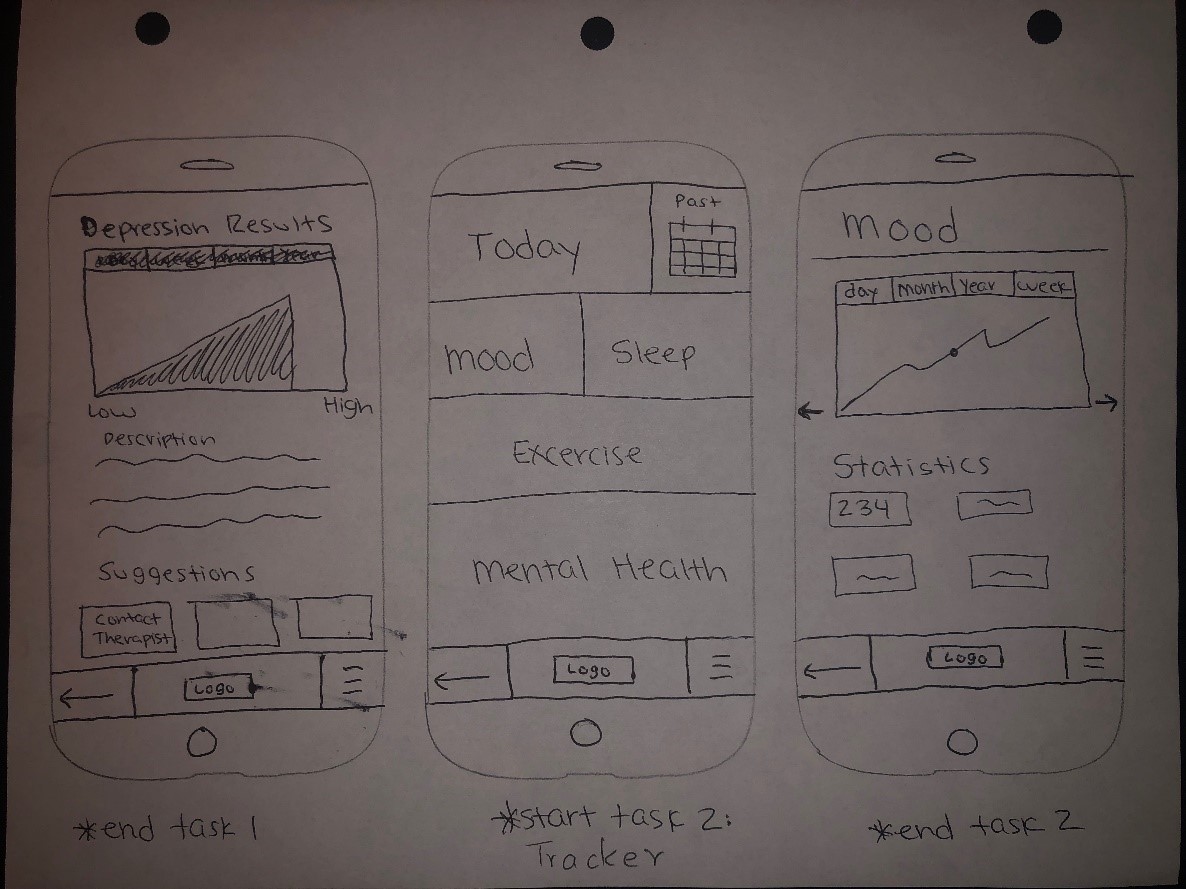 Depression Results
Low High
Description
Suggestions
Contact
Therapist
Logo
*end task 1
Today
Past
mood
Sleep
Excercise
mental Health
Logo
*start task 2:
Tracker
mood
day month year week
Statistics
234
Logo
*end task 2